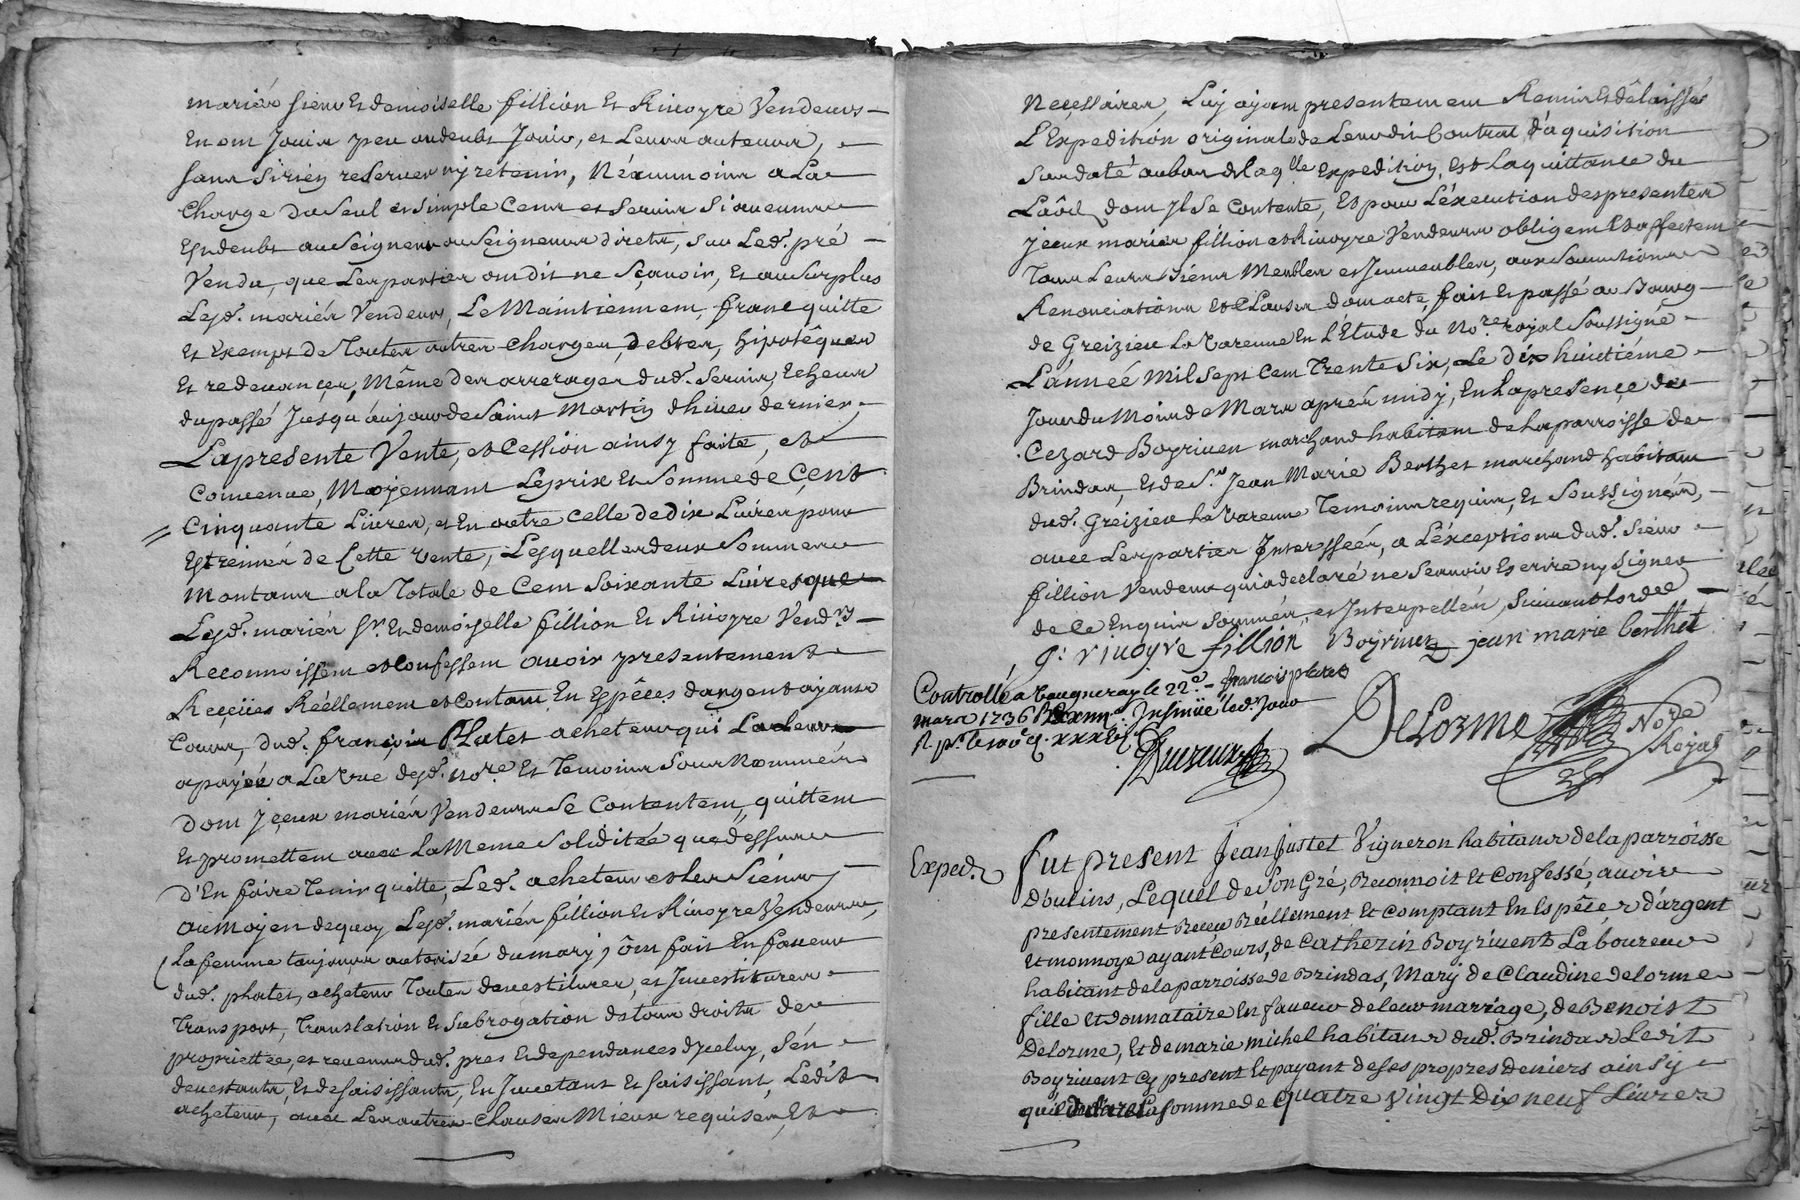 mariés sieur Et demoiselle fillion Et Rivoyre Vendeurs
En ont Jouir peu ou deubt Jouir, et Leurs auteurs,
sans si rien reserver ny retenir, Néanmoins a La
Charge du seul et simple Cens et servis si aucuns
Est deubt au seigneur ou seigneurs directs, sur Led. pré
Vendu, que Les parties ont dit ne sçavoir, Et au surplus
Lesd. mariés Vendeurs, Le Maintiennent, franc quitte
Et Exempt de Toutes autres charges, debtes, hipotêques
Et redevances, Même des arrerages dud. servis, Echeus
du passé Jusqu'aujour de saint Martin dhiver dernier,
La presente Vente, et Cession ainsy faite, et
Convenue, Moyennant Le prix Et Somme de Cent
Cinquante Livres, et En outre celle de dix Livres pour
Estreines de Cette vente, Lesquelles deux sommes
montant a la Totale de Cent soixante Livres que
Lesd. mariés Sr. Et demoiselle fillion Et Rivoyre Vendrs
Reconnoissent et Confessent avoir presentement
Reçües Réellement et Contant En Espêces d'argent ayant
Cours, dud. françois Plates acheteur qui La Leur
a payée a La Vue desd. nore. Et Temoins sous Nommés
Dont Jceux mariés Vendeurs se Contentent, quittent
Et promettent avec La Meme Solidité que dessus
d'En faire Tenir quitte, Led. acheteur et Les siens
au Moyen de quoy Lesd. mariés fillion Et Rivoyre Vendeurs,
La femme toujours autorisée du mary, ont fait En faveur
dud. plates, acheteur Toutes devestitures, et Jnvestitures
Transport, Translation Et subrogation de tous droits de
proprietée, et revenus dud. pres Et dependances d'Jceluy, s'en
devestants, Et desaisissants, En Jnvestant Et saisissant, Ledit
acheteur, avec Les autres Clauses Mieux requises, Et
Necessaires, Luy ayant presentement Remis Et délaissé
L'Expedition originale de Leurdit Contrat d'aquisition
sus daté au bas de laqlle Expedition, est La quittance du
Laôd dont Jl se Contente, Et pour L'éxecution des presentes
jceux mariés fillion et Rivoyre Vendeurs obligent Et affectent
Tous Leurs biens Meubles et Jmmeubles, aux soumissions
Renonciations et Clauses, dont acte, fait Et passé au Bourg
de Greizieu La Varenne En L'Etude du Nore. royal Soussigné
L'année Mil sept Cent Trente six, Le dix huictiéme
Jour du Mois de Mars aprés midy, En La presence de
Cezard Boyriven marchand habitant de La parroisse de
Brindas, Et de Sr. Jean Marie Berthet marchand habitant
dud. Greizieu La Varenne Temoins requis, Et Soussignés,
avec Les parties Jnteressées, a L'éxception dud. sieur
fillion Vendeur qui a declaré ne Scavoir Escrire ny signer
de Ce Enquis sommés, et Jnterpellés, suivant Lord.
rivoyre fillion Boyriven jean marie berthet
francois plates
Controllé a Vaugneray le 22e.
mars 1736 Jnsinué led. Jour
Delorme Nore Royal
Exped.
fut present Jean Justet Vigneron habitant de la parroisse
D'oulins, Lequel de son Gré, Reconnoit Et Confesse, avoir
presentement Reçeu Réellement Et Comptant En Espêces d'argent
Et monnoye ayant Cours, de Catherin Boyrivent Laboureur
habitant de la parroisse de Brindas, Mary de Claudine delorme
fille Et donnataire En faveur de leur marriage, de Benoist
Delorme, Et de marie michel habitans dud. Brindas Ledit
Boyrivent Cy present Et payant de ses propres deniers ainsy
qu'il déclare La somme de quatre Vingt Dix neuf Livres